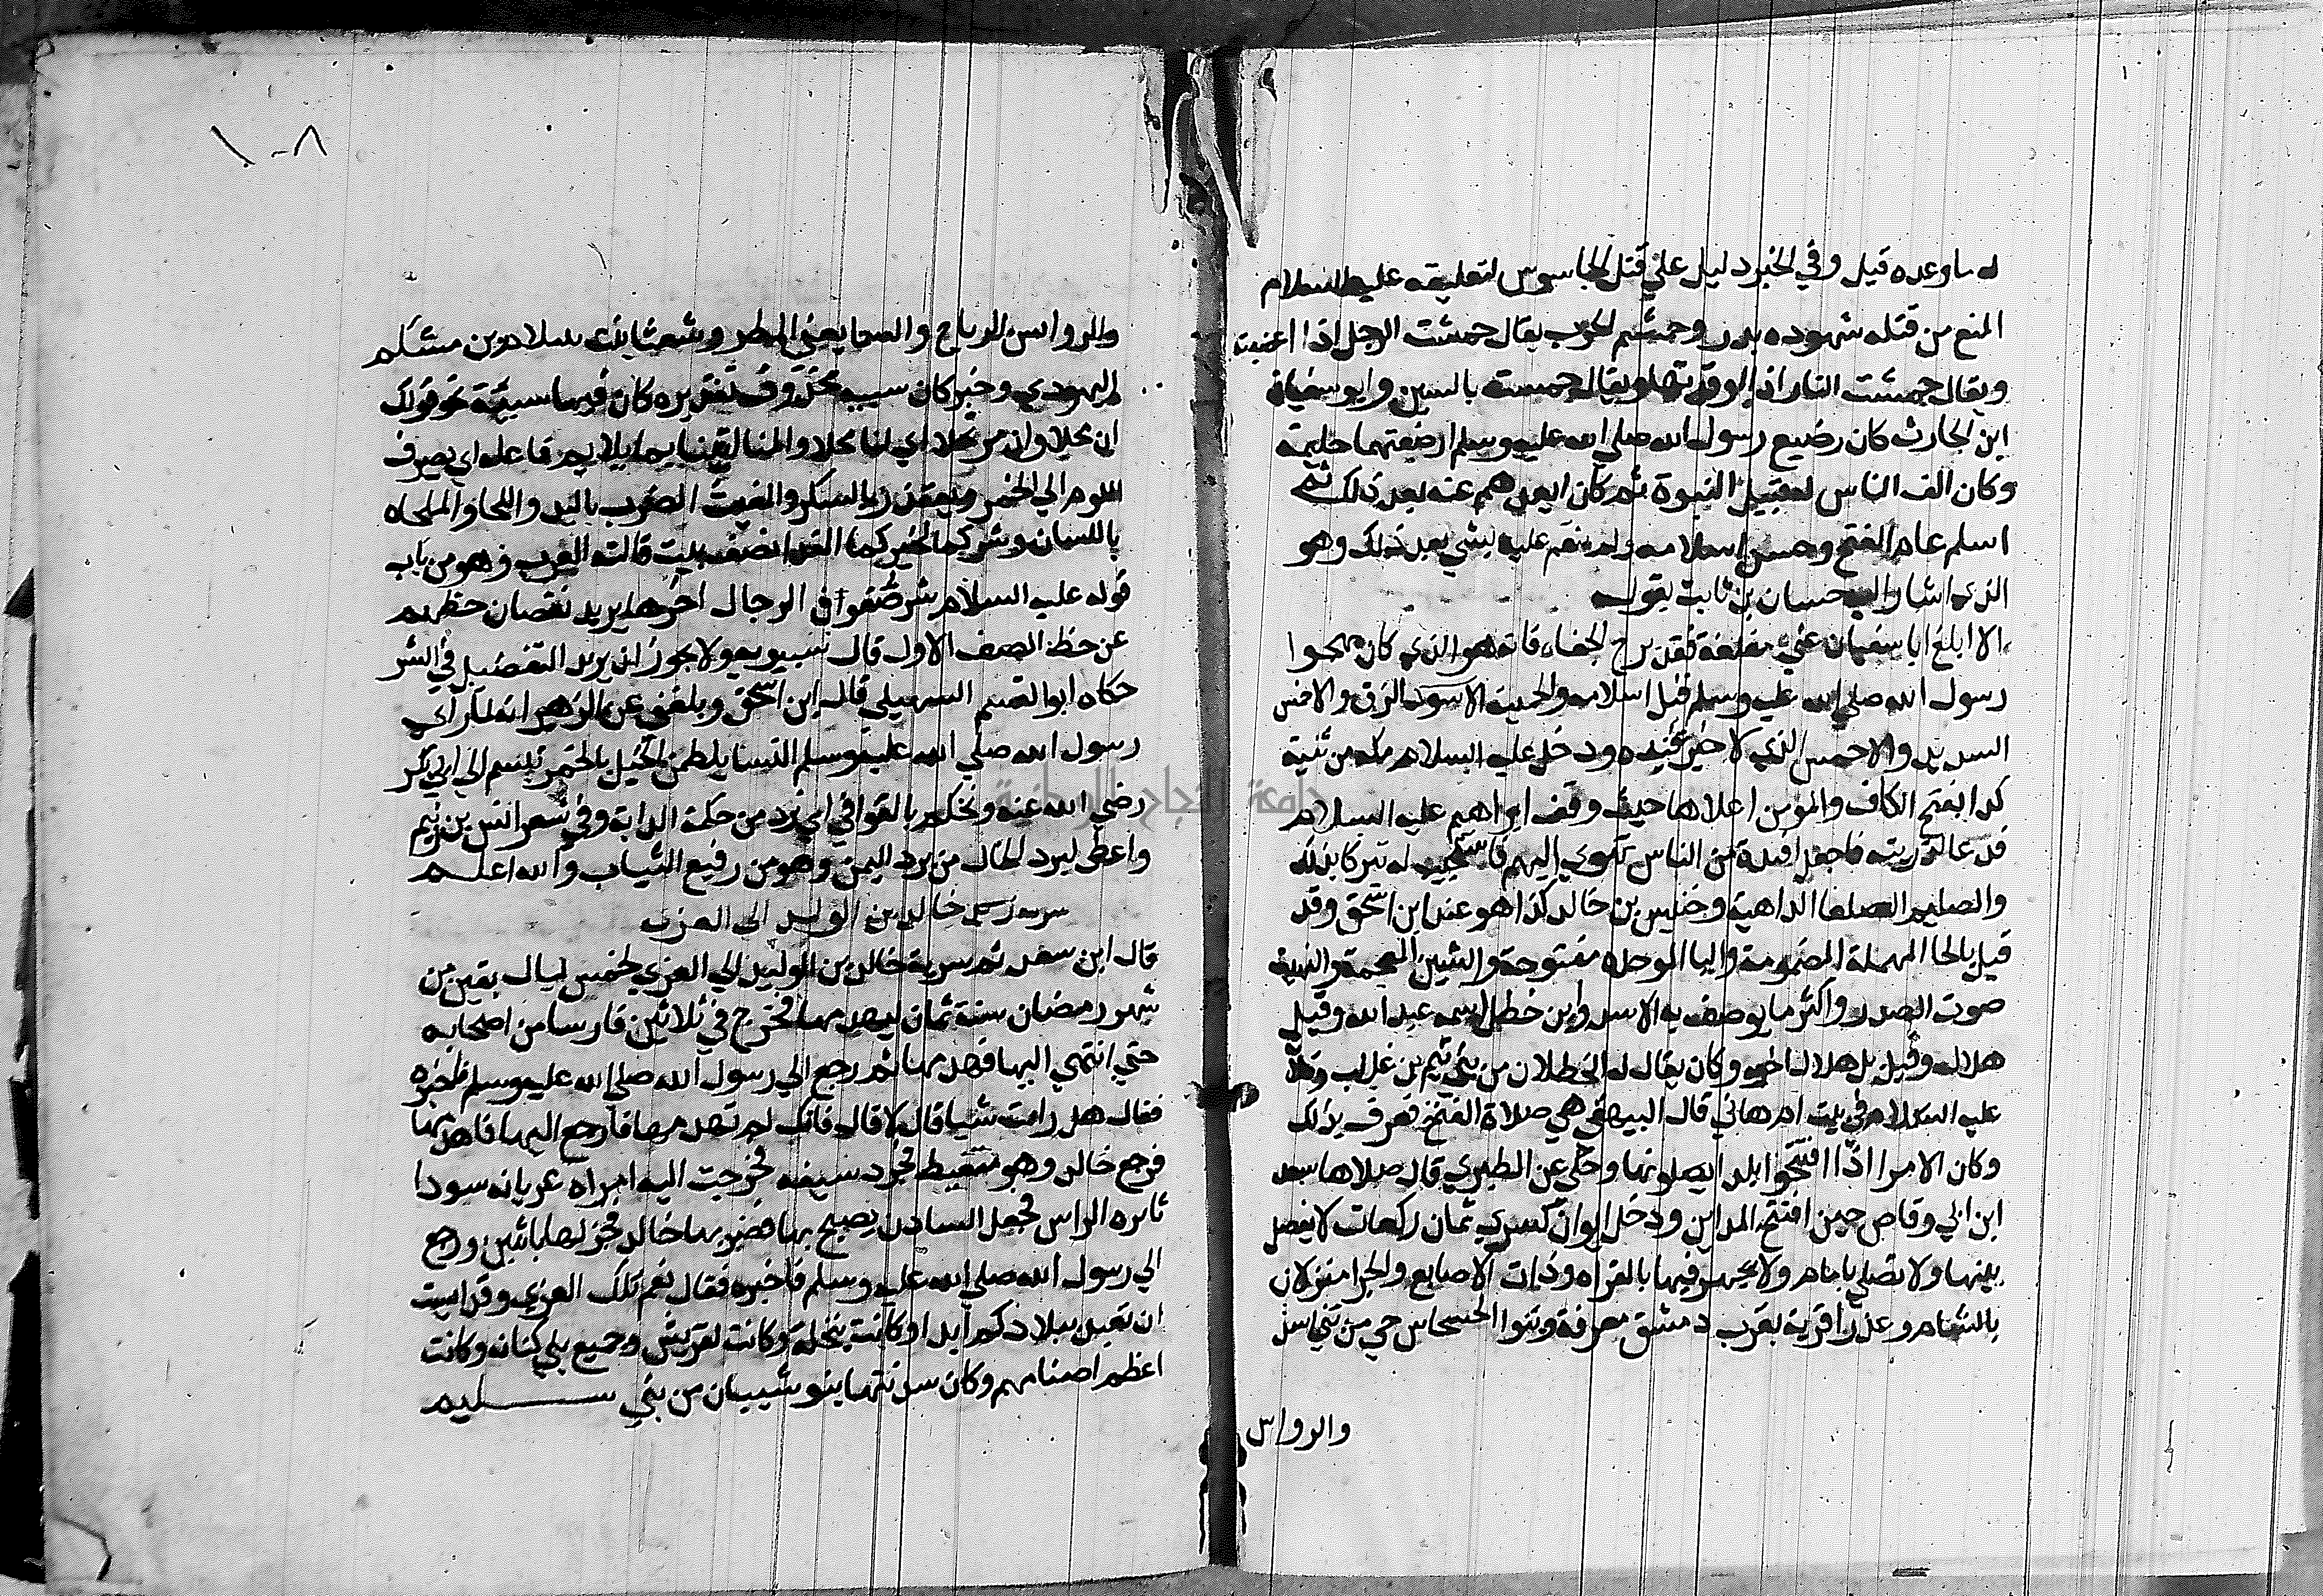 له ما وعده قيل وفي الخبر دليل علي قتل الجاسوس لتعليقه عليه السلام
المنع من قتله شهوده بدر وحمشتم الحرب يقال حمشت الرجل اذا اغضبته
ويقال حمشت النار اذا اوقدتها ويقال حمست بالسين وابو سفيان
ابن الحارث كان رضيع رسول الله صلي الله عليه وسلم ارضعتهما حليمة
وكان الف الناس له قبل النبوة ثم كان ابعدهم عنه بعد ذلك ثم
اسلم عام الفتح وحسن اسلامه ولم ينقم عليه بشي بعد ذلك وهو
الذي اشار اليه حسان بن ثابت بقوله
الا ابلغ ابا سفيان عني مغلغة فقد برح الخفاء فانه هو الذي كان يهجوا
رسول الله صلي الله عليه وسلم قبل اسلامه والحميت الاسود الزق والاحمس
السديد والاحمس الذي لا خير عنده ودخل عليه السلام مكه من ثنية
كدا بفتح الكاف والمؤمن اعلاها حيث وقف ابراهيم عليه السلام
فدعا لذريته فاجعل افيدة من الناس تهوي اليهم فاستجيب له تبركا بذلك
والصليم الصلعا الداهية وخنيس بن خالد كذا هو عند ابن اسحق وقد
قيل بالحا المهملة المضمومة والبا الموحده مفتوحة والشين المعجمة والنهيت
صوت الصدر واكثر ما يوصف به الاسد وابن خطل اسمه عبد الله وقيل
هلال وقيل بل هلال اخوه وكان يقال له الخطلان من بني تيم بن غالب وصلاة
عليه السلام في بيت ام هاني قال البيهقي هي صلاة الفتح تعرف بذلك
وكان الامرا اذا افتتحوا بلدا يصلونها وحكي عن الطبري قال صلاها سعد
ابن ابي وقاص حين افتتح المداين ودخل ايوان كسري ثمان ركعات لا يفصل
بينها ولا تصلي بامام ولا يجهر فيها بالقراه وذات الاصابع والجوا منزلان
بالشام وعذرا قرية بقرب دمشق معرفة وبنوا الحسحاس حي من بني اسد
والرواس
١٠٨
والروامس الرياح والسما يعني المطر وشعثا بنت سلام بن مشكم
اليهودي وخبر كان سبيه محذوف تقديره كان فيها سبيئة نحو قولك
ان محلا وان مرتحلا اي لنا محلا والمنا القينا بما يلام فاعله اي يصرف
اللوم الي الخمر ويعتذر بالسكر والمغث الضرب باليد واللحا والملحاه
باللسان وشركما لخيركما الفدا نصف بيت قالته العرب وهو من باب
قوله عليه السلام شر صفوف الرجال اخرها يريد نقصان حظهم
عن حظ الصف الاول قال سيبويه ولا يجوز ان يريد التفضيل في الشر
حكاه ابو القسم السهيلي قال ابن اسحق وبلغني عن الزهري انه لما راي
رسول الله صلي الله عليه وسلم النسا يلطمن الخيل بالخمر تبسم الي ابي بكر
رضي الله عنه ونحكم بالقوافي اي نرد من حكمة الدابة وفي شعر انس بن زنيم
واعطي لبرد الخال من برد اليمن وهو من رفيع الثياب والله اعلم
سريه خالد بن الوليد الي العزي
قال ابن سعد ثم سرية خالد بن الوليد الي العزي لخمس ليال بقين من
شهر رمضان سنة ثمان ليهدمها فخرج في ثلاثين فارسا من اصحابه
حتي انتهي اليها فهدمها ثم رجع الي رسول الله صلي الله عليه وسلم فاخبره
فقال هل رايت شيا قال لا قال فانك لم تهدمها فارجع اليها فاهدمها
فرجع خالد وهو متغيظ فجرد سيفه فخرجت اليه امراه عريانه سودا
ثايره الراس فجعل السادن يصيح بها فضربها خالد فجزلها باثنين ورجع
الي رسول الله صلي الله عليه وسلم فاخبره فقال نعم تلك العزي وقد ايست
ان تعبد ببلادكم ابدا وكانت بنخلة وكانت لقريش وجميع بني كنانه وكانت
اعظم اصنامهم وكان سدنتها بنو شيبان من بني سليم
جامعة النجاح الوطنية